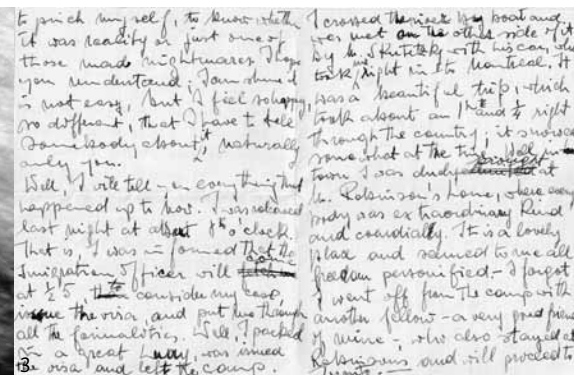 to pinch myself, to know whether
it was reality or just one of
those made nightmares. I hope
you understand; I am sure it
is not easy, but I feel so happy,
so different, that I have to tell
somebody about it, naturally
only you.
Well, I will tell you everything that
happened up to now. I was released
last night at about o'clock.
That is, I was informed that the
Imigration Officer will
at ½ 5, consider my case,
issue the visa, and put me through
all the formalities. Well, I packed
in a great hurry, was issued
the visa and left the camp.
3
I crossed the river by boat and
was met on the other side of it
by Mr. with his car, who
took me right in to Montreal. It
was a beautiful trip, which
took about an 1 and ¼ right
through the country; it snowed
somewhat at the time. Well in
town I was duly brought at
Mr. Robinson's home, where every
body was extraordinary kind
and coardially. It is a lovely
place and seemed to me all
freedom personified – I forgot
I went off from the camp with
another fellow – a very good friend
of mine, who also stayed at
Robinsons and will proceed to